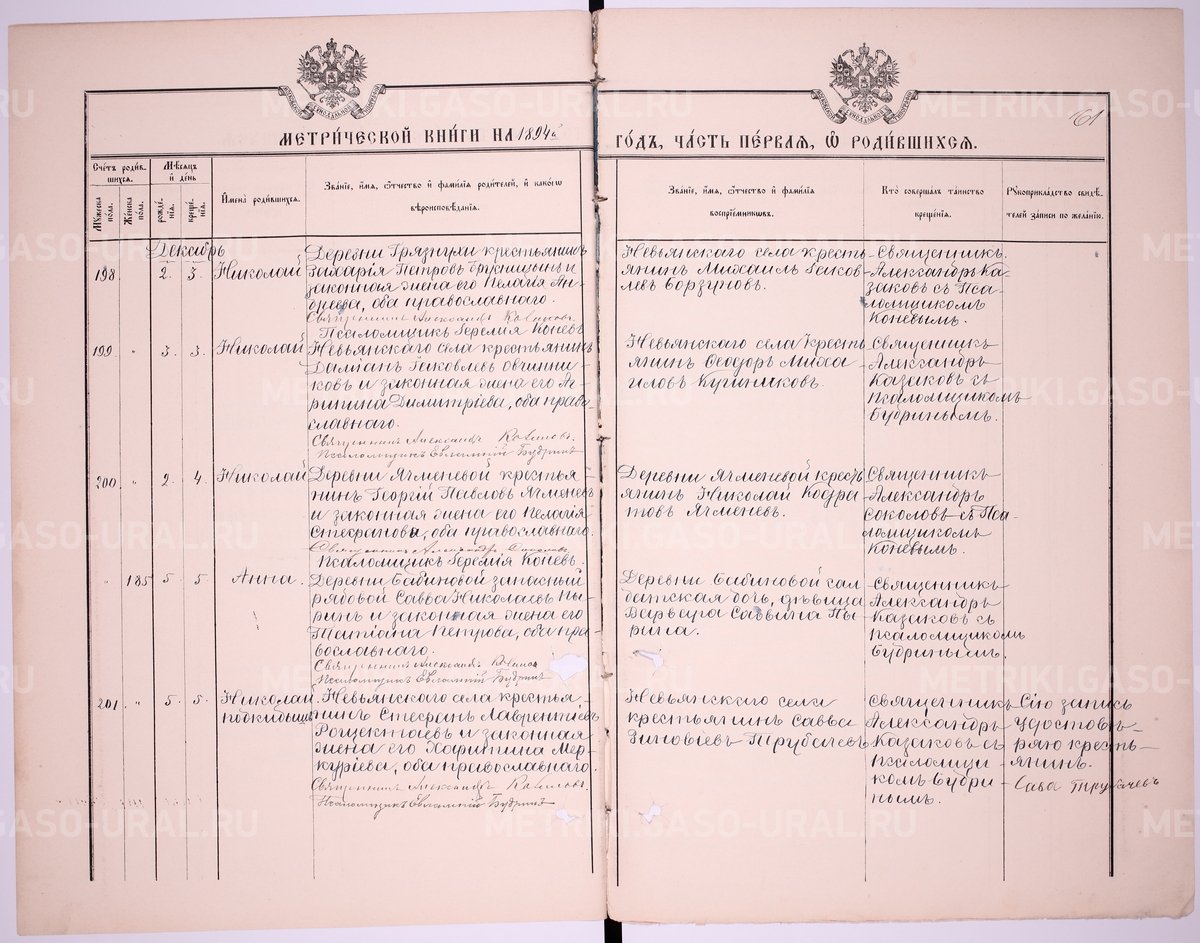 161
МЕТРИ́ЧЕСКОЙ КНИ́ГИ НА 1894й
ГО́ДЪ, ЧА́СТЬ ПЕ́РВАЯ, Ѿ РОДИ́ВШИХСЯ.
Сче́тъ роди́в-
шихся.
Мѣ́сяцъ
и́ де́нь
Му́жеска
пола.
Же́нска
пола.
рожде́-
нія.
креще́-
нія.
И҆мена̀ роди́вшихся.
Зва́ніе, и҆́мя, ѻ҆́тчество и҆ фами́лія роди́телей, и҆ како́гѡ
вѣроисповѣ́данія.
Зва́ніе, и҆́мя, ѻ҆́тчество и҆ фами́лія
воспріе́мникѡвъ.
Кто̀ соверша́лъ та́инство
креще́нія.
Рꙋкоприкла́дство свидѣ́-
телей за́писи по жела́нію.
Декабрь
198.
2.
3.
Николай
Деревни Грязнухи крестьянинъ
Захарія Петровъ Брусницынъ и
законная жена его Пелагія Ан-
дреева, оба православнаго.
Священникъ Александръ Казаковъ.
Псаломщикъ Іеремія Коневъ
Невьянскаго села кресть-
янинъ Михаилъ Іаков-
левъ Борзуновъ.
Священникъ
Александръ Ка-
заковъ съ Пса-
ломщикомъ
Коневымъ.
199
"
3.
3.
Николай
Невьянскаго села крестьянинъ
Даміанъ Іаковлевъ Овчинни-
ковъ и законная жена его Аг-
рипина Димитріева, оба право-
славнаго.
Священникъ Александръ Казаковъ.
Псаломщикъ Евлампій Будринъ
Невьянскаго села Кресть-
янинъ Ѳеодоръ Миха-
иловъ
Священникъ
Александръ
Казаковъ съ
Псаломщикомъ
Будринымъ.
200.
"
2.
4.
Николай
Деревни Ячменевой крестья-
нинъ Георгій Павловъ Ячменевъ
и законная жена его Пелагія
Стефанова, оба православнаго.
Священникъ Александръ Соколовъ
Псаломщикъ Іеремія Коневъ.
Деревни Ячменевой крест-
янинъ Николай Кодра-
товъ Ячменевъ.
Священникъ
Александръ
Соколовъ съ Пса-
ломщикомъ
Коневымъ.
"
185
5
5.
Анна.
Деревни Бабиновой запасный
рядовой Савва Николаевъ Пы-
ринъ и законная жена его
Татіана Петрова, оба пра-
вославнаго.
Священникъ Александръ Казаковъ
Псаломщикъ Евлампій Будринъ
Деревни Бабиновой сол-
датская дочь, дѣвица
Варвара Саввина Пы-
рина.
Священникъ
Александръ
Казаковъ съ
Псаломщикомъ
Будринымъ.
201.
"
5.
5.
Николай.
подкидышъ
Невьянскаго села крестья-
нинъ Стефанъ Лаврентіевъ
Рощектаевъ и законная
жена его Харитина Мер-
куріева, оба православнаго.
Священникъ Александръ Казаковъ.
Псаломщикъ Евлампій Будринъ
Невьянскаго села
крестьянинъ Савва
Зиновіевъ Трубачевъ
Священникъ
Александръ
Казаковъ съ
Псаломщи-
комъ Будри-
нымъ.
Сію запись
Удостовѣ-
ряю кресть-
янинъ.
Сава Трубачевъ
METRIKI.GASO-URAL.RU